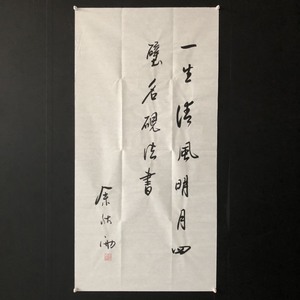 一生清風明月四
壁名硯法書
余